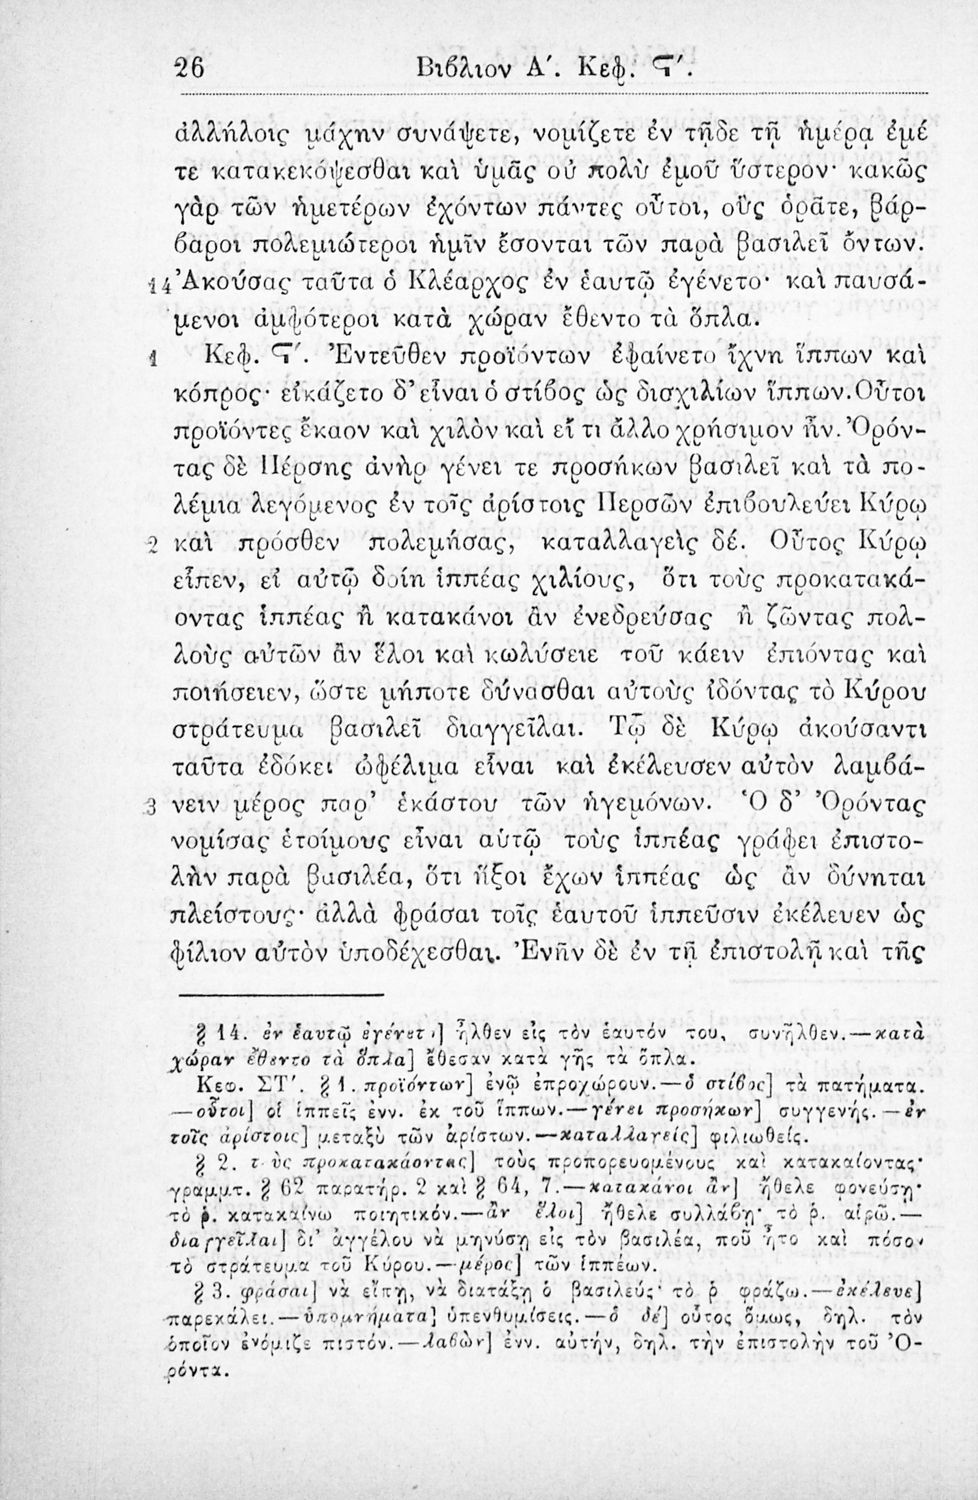 26 Βιβλιον Α΄. Κεφ. Ϛ΄.
ἀλλήλοις μάχην συνάψετε, νομίζετε ἐν τῇδε τῇ ἡμέρᾳ ἐμέ
τε κατακεκόψεσθαι καὶ ὑμᾶς οὐ πολὺ ἐμοῦ ὕστερον· κακῶς
γὰρ τῶν ἡμετέρων ἐχόντων πάντες οὗτοι, οὓς ὁρᾶτε, βάρ-
βαροι πολεμιώτεροι ἡμῖν ἔσονται τῶν παρὰ βασιλεῖ ὄντων.
14 Ἀκούσας ταῦτα ὁ Κλέαρχος ἐν ἑαυτῷ ἐγένετο· καὶ παυσά-
μενοι ἀμφότεροι κατὰ χώραν ἔθεντο τὰ ὅπλα.
1 Κεφ. Ϛ΄. Ἐντεῦθεν προϊόντων ἐφαίνετο ἴχνη ἵππων καὶ
κόπρος· εἰκάζετο δ' εἶναι ὁ στίβος ὡς δισχιλίων ἵππων. Οὗτοι
προϊόντες ἔκαον καὶ χιλὸν καὶ εἴ τι ἄλλο χρήσιμον ἦν. Ὀρόν-
τας δὲ Πέρσης ἀνὴρ γένει τε προσήκων βασιλεῖ καὶ τὰ πο-
λέμια λεγόμενος ἐν τοῖς ἀρίστοις Περσῶν ἐπιβουλεύει Κύρῳ
2 καὶ πρόσθεν πολεμήσας, καταλλαγεὶς δέ. Οὗτος Κύρῳ
εἶπεν, εἰ αὐτῷ δοίη ἱππέας χιλίους, ὅτι τοὺς προκατακά-
οντας ἱππέας ἢ κατακάνοι ἂν ἐνεδρεύσας ἢ ζῶντας πολ-
λοὺς αὐτῶν ἂν ἕλοι καὶ κωλύσειε τοῦ κάειν ἐπιόντας καὶ
ποιήσειεν, ὥστε μήποτε δύνασθαι αὐτοὺς ἰδόντας τὸ Κύρου
στράτευμα βασιλεῖ διαγγεῖλαι. Τῷ δὲ Κύρῳ ἀκούσαντι
ταῦτα ἐδόκει ὠφέλιμα εἶναι καὶ ἐκέλευσεν αὐτὸν λαμβά-
3 νειν μέρος παρ' ἑκάστου τῶν ἡγεμόνων. Ὁ δ' Ὀρόντας
νομίσας ἑτοίμους εἶναι αὑτῷ τοὺς ἱππέας γράφει ἐπιστο-
λὴν παρὰ βασιλέα, ὅτι ἥξοι ἔχων ἱππέας ὡς ἂν δύνηται
πλείστους· ἀλλὰ φράσαι τοῖς ἑαυτοῦ ἱππεῦσιν ἐκέλευεν ὡς
φίλιον αὐτὸν ὑποδέχεσθαι. Ἐνῆν δὲ ἐν τῇ ἐπιστολῇ καὶ τῆς
§ 14. ἐν ἑαυτῷ ἐγένετο] ἦλθεν εἰς τὸν ἑαυτόν του, συνῆλθεν.—κατὰ
χώραν ἔθεντο τὰ ὅπλα] ἔθεσαν κατὰ γῆς τὰ ὅπλα.
Κεφ. ΣΤ΄. § 1. προϊόντων] ἐνῷ ἐπροχώρουν.—ὁ στίβος] τὰ πατήματα.
—οὗτοι] οἱ ἱππεῖς ἐνν. ἐκ τοῦ ἵππων.—γένει προσήκων] συγγενής.—ἐν
τοῖς ἀρίστοις] μεταξὺ τῶν ἀρίστων.—καταλλαγείς] φιλιωθείς.
§ 2. τοὺς προκατακάοντας] τοὺς προπορευομένους καὶ κατακαίοντας·
γραμμτ. § 62 παρατήρ. 2 καὶ § 64, 7.—κατακάνοι ἂν] ἤθελε φονεύσῃ·
τὸ ῥ. κατακαίνω ποιητικόν.—ἂν ἕλοι] ἤθελε συλλάβῃ· τὸ ῥ. αἱρῶ.—
διαγγεῖλαι] δι' ἀγγέλου νὰ μηνύσῃ εἰς τὸν βασιλέα, ποῦ ἦτο καὶ πόσον
τὸ στράτευμα τοῦ Κύρου.—μέρος] τῶν ἱππέων.
§ 3. φράσαι] νὰ εἴπῃ, νὰ διατάξῃ ὁ βασιλεύς· τὸ ῥ φράζω.—ἐκέλευε]
παρεκάλει.—ὑπομνήματα] ὑπενθυμίσεις.—ὁ δέ] οὗτος ὅμως, δηλ. τὸν
ὁποῖον ἐνόμιζε πιστόν.—λαβὼν] ἐνν. αὐτήν, δηλ. τὴν ἐπιστολὴν τοῦ Ὀ-
ρόντα.